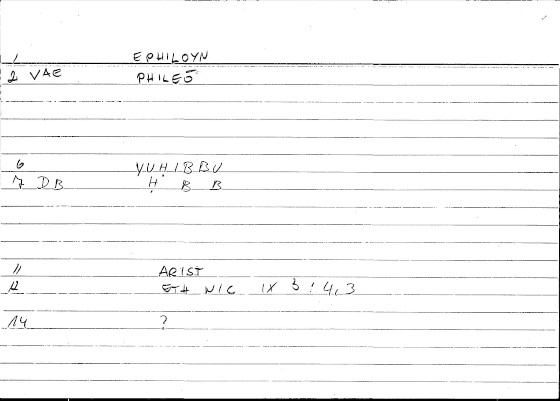 1 EPHILOYN
2 VAE PHILEŌ
6 YUḤIBBU
7 DB Ḥ B B
11 ARIST
12 ETH NIC IX 3 : 4,3
14 ?